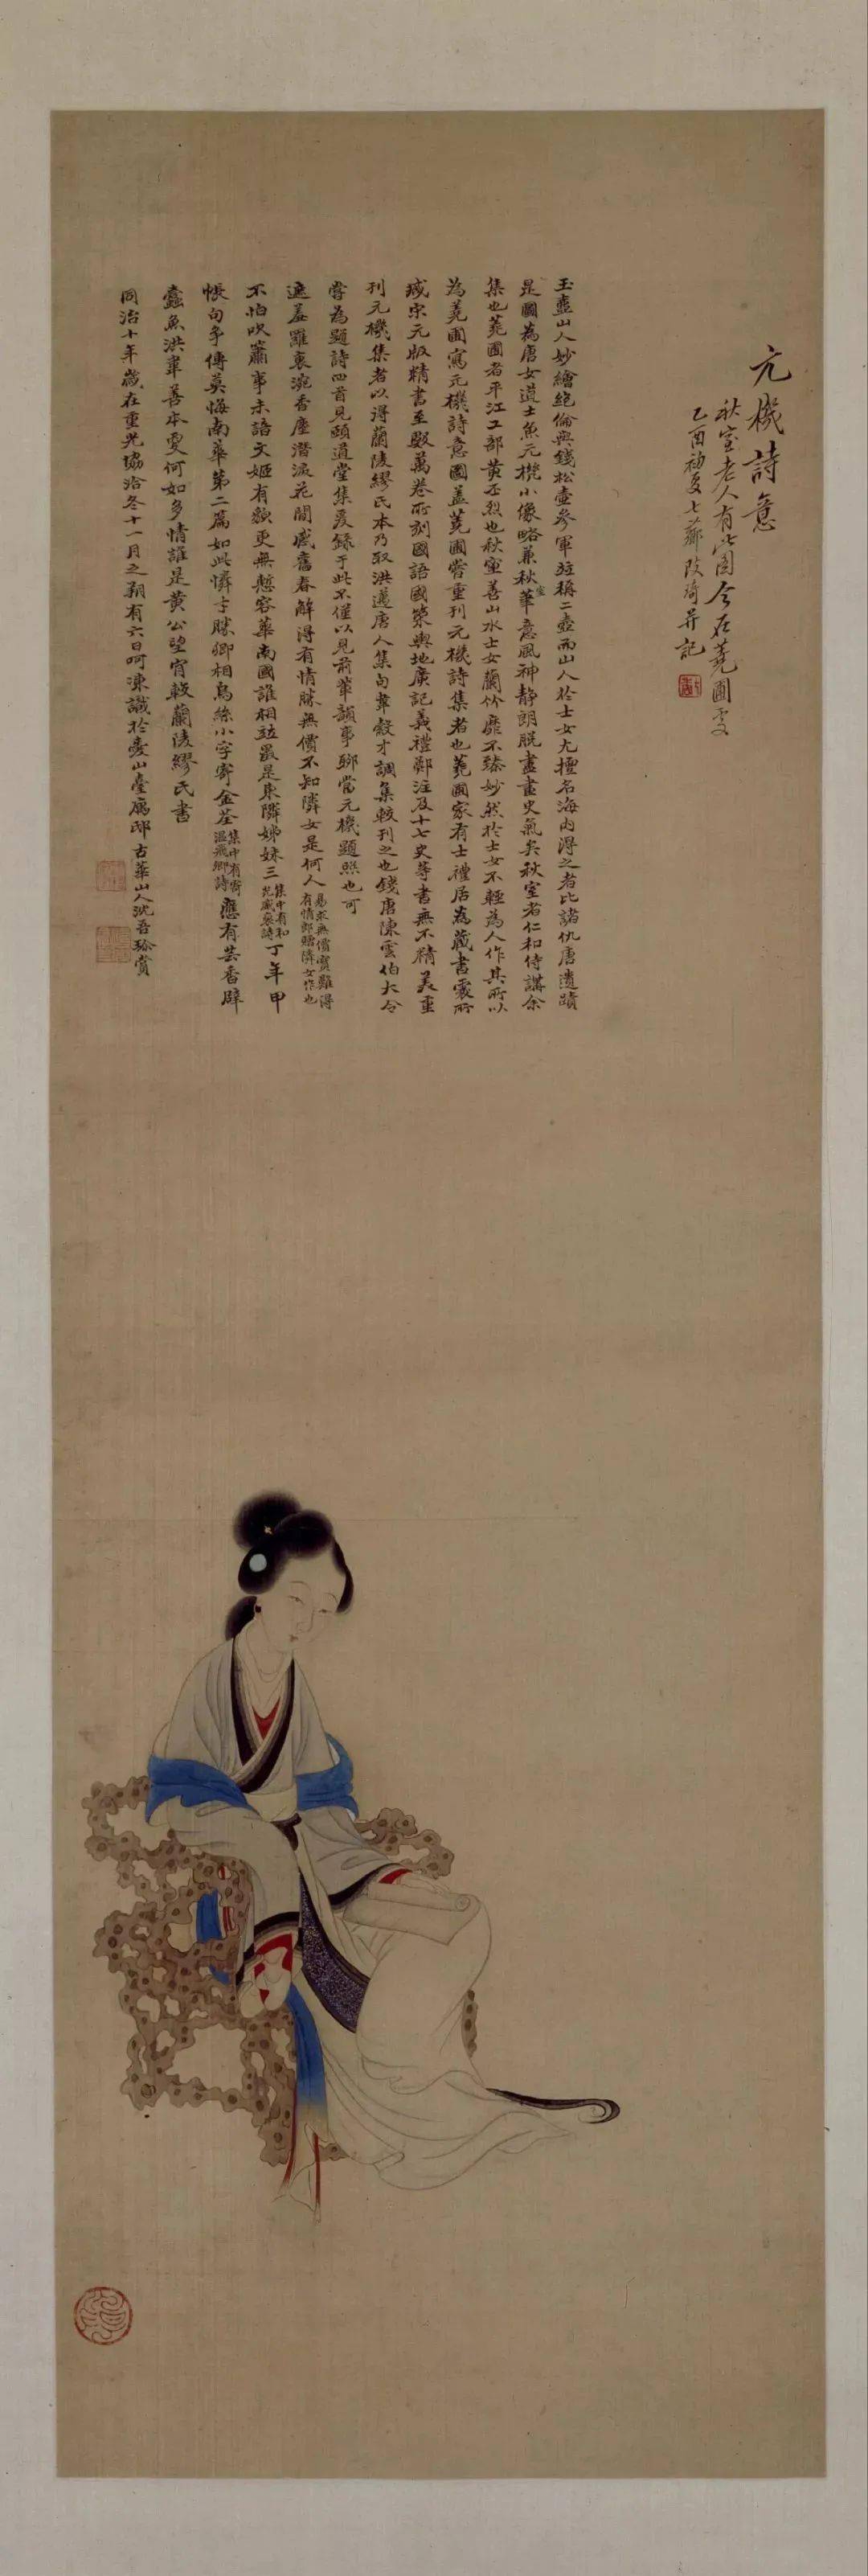 元機詩意
秋室老人有此圖今在蕘圃處
乙酉初夏七薌改琦并記
玉壺山人妙繪絕倫與錢松壺參軍並稱二壺而山人於士女尤擅名海內得之者比諸仇唐遺蹟
是圖為唐女道士魚元機小像略兼秋室華意風神靜朗脫盡畫史氣矣秋室者仁和侍講余
集也蕘圃者平江工部黃丕烈也秋室善山水士女蘭竹靡不臻妙然於士女不輕為人作其所以
為蕘圃寫元機詩意圖蓋蕘圃嘗重刊元機詩集者也蕘圃家有士禮居為藏書處所
臧宋元版精書至數萬卷所刻國語國策輿地廣記義禮鄭注及十七史等書無不精美重
刊元機集者以得蘭陵繆氏本乃取洪邁唐人集句韋縠才調集較刊之也錢唐陳雲伯大令
嘗為題詩四首見頤道堂集爰錄于此不僅以見前輩韻事聊當元機題照也可
遮羞羅袠浣香塵潛淚花間感舊春解得有情勝無價不知隣女是何人易求無價寶難得有情郎贈隣女作也
不怕吹簫事未諧文姬有貌更無慙容華南國誰相竝最是東隣姊妹三集中有和光威裒詩丁年甲
帳句爭傳莫悔南華第二篇如此憐才勝卿相烏絲小字寄金荃集中有寄溫飛卿詩應有芸香辟
蠹魚洪韋善本更何如多情誰是黃公望宵較蘭陵繆氏書
同治十年歲在重光協洽冬十一月之朔有六日呵凍識於 山臺寓邸古華山人沈吾 賞